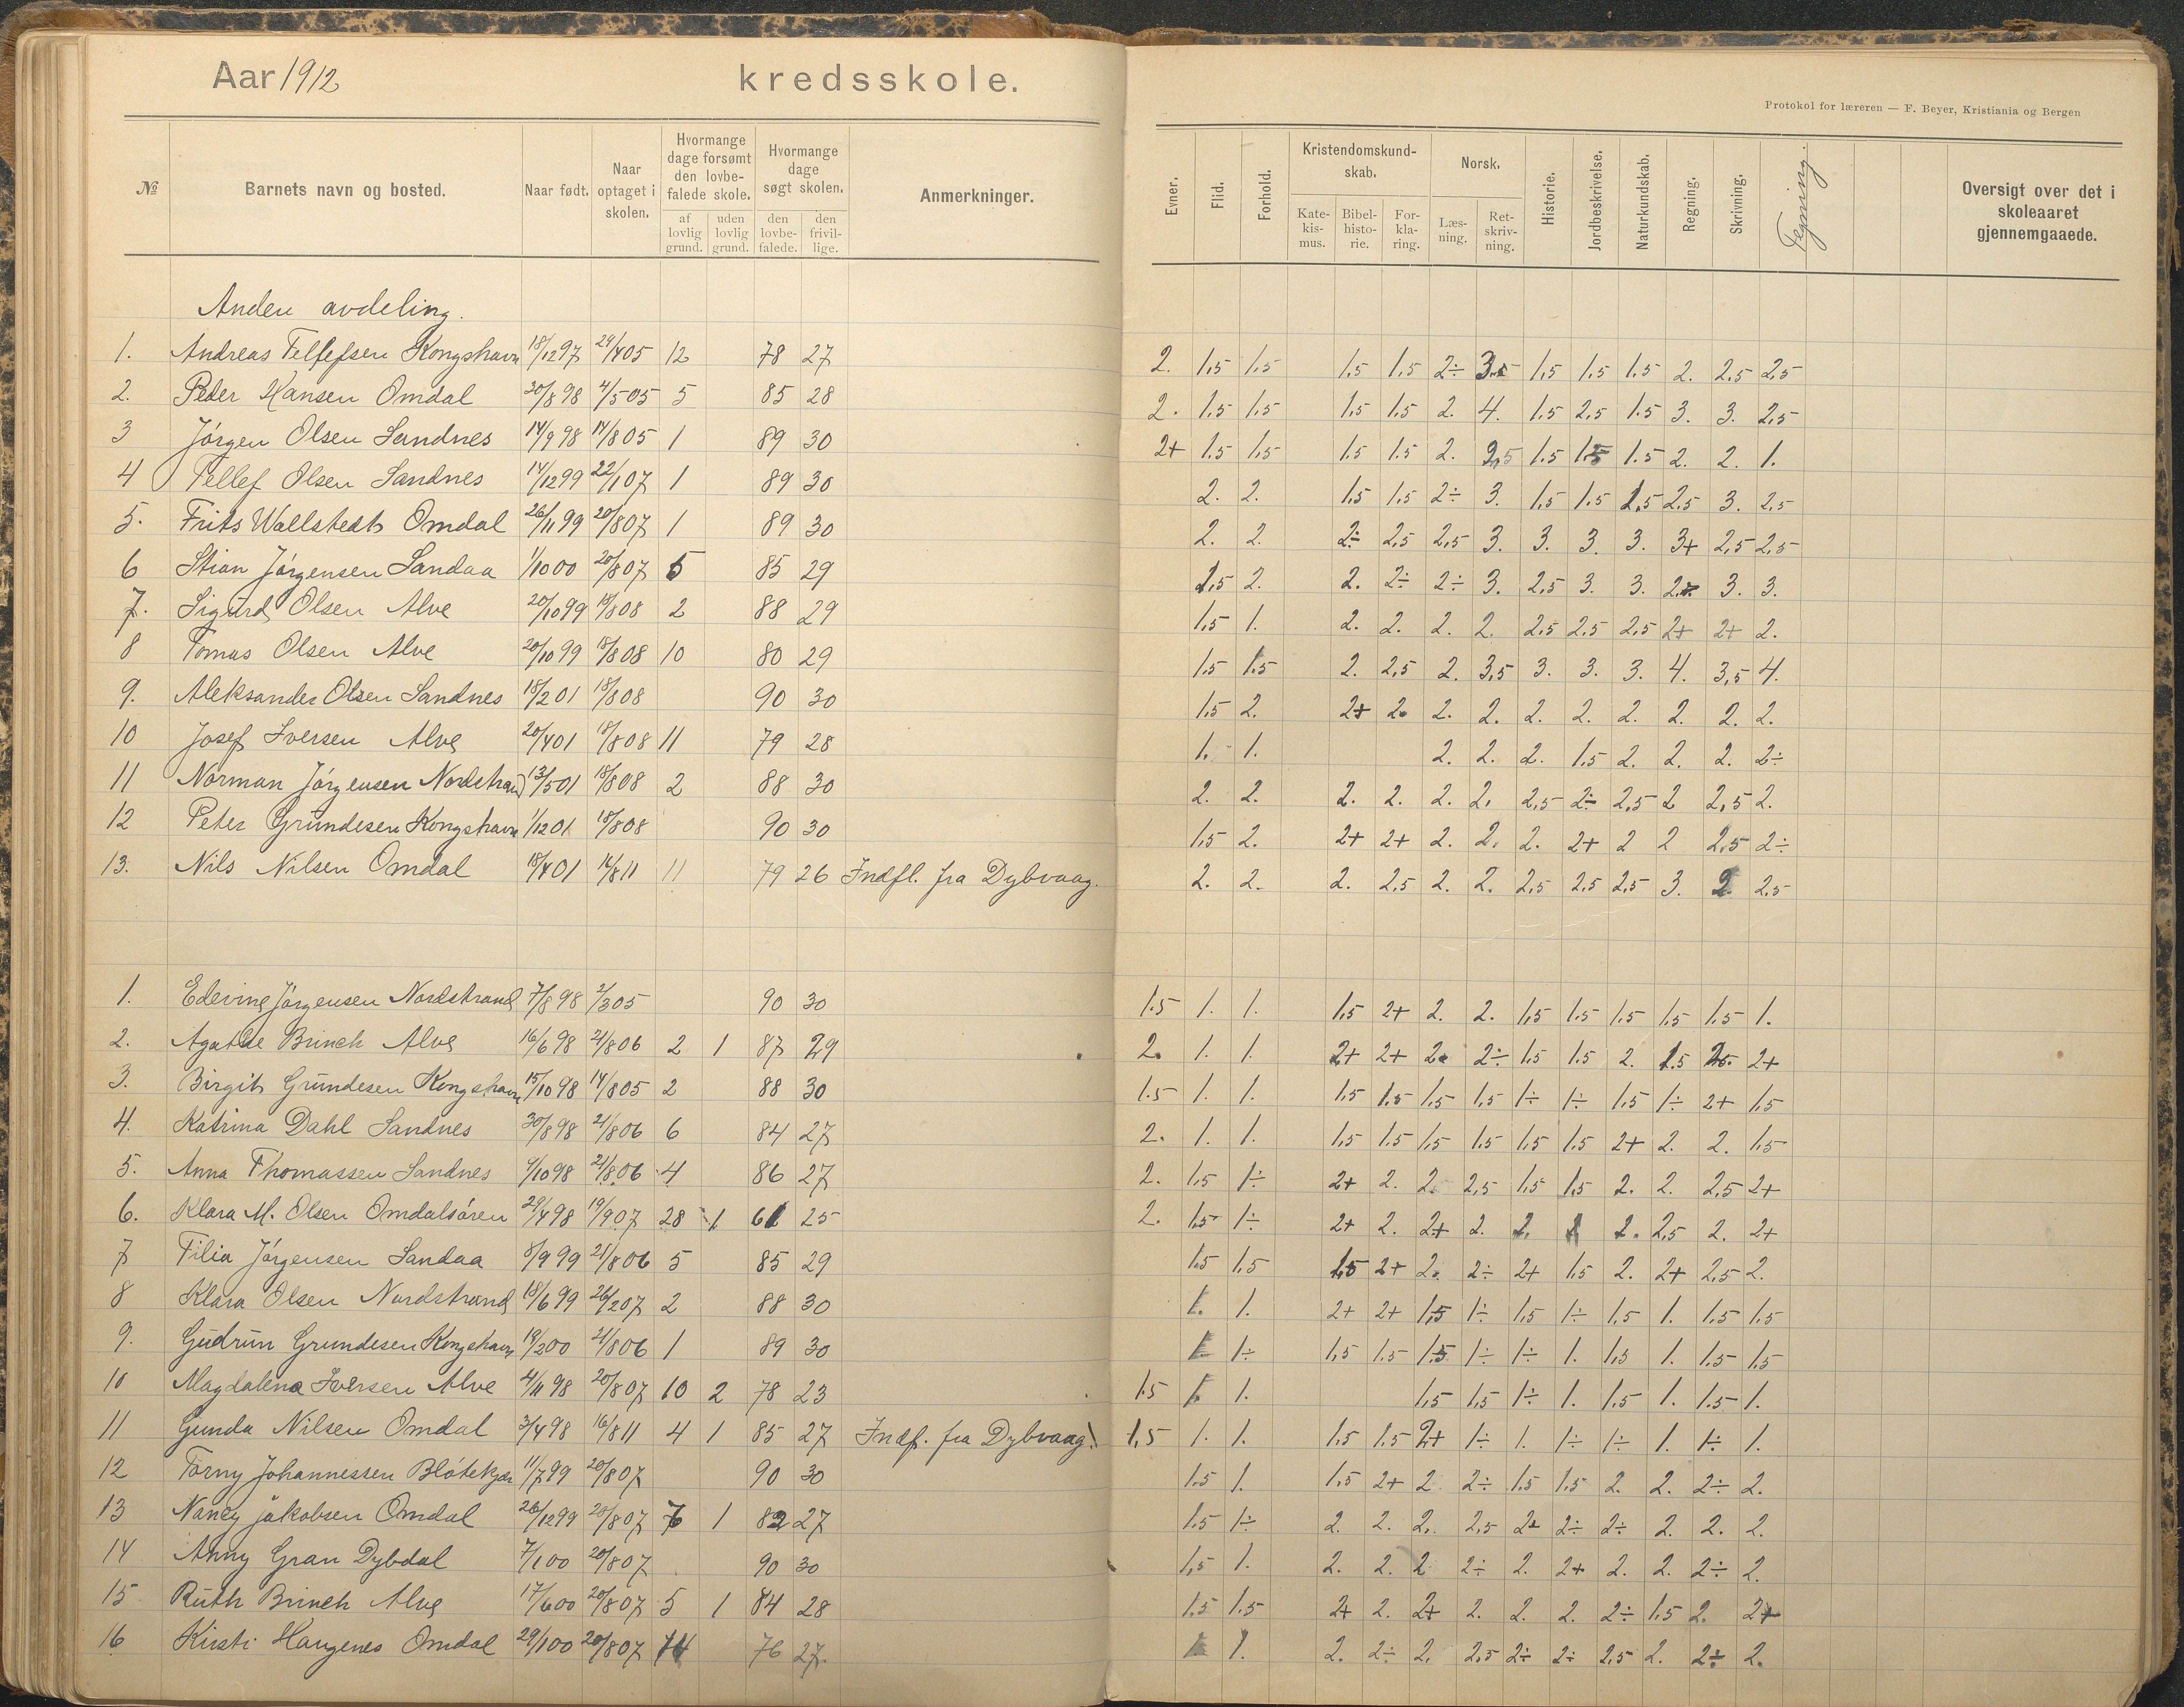 Aar 1912 kredsskole.
Protokol for læreren — F. Beyer, Kristiania og Bergen
№ Barnets navn og bosted. Naar født. Naar optaget i skolen. Hvormange dage forsømt den lovbefalede skole. af lovlig grund. uden lovlig grund. Hvormange dage søgt skolen. den lovbefalede. den frivillige. Anmerkninger. Evner. Flid. Forhold. Kristendomskundskab. Katekismus. Bibelhistorie. Forklaring. Norsk. Læsning. Retskrivning. Historie. Jordbeskrivelse. Naturkundskab. Regning. Skrivning. Tegning. Oversigt over det i skoleaaret gjennemgaaede.
Anden avdeling.
1. Andreas Tellefsen Kongshavn 18/12 97 29/4 05 12 78 27 2. 1,5 1,5 1,5 1,5 2÷ 3.5 1,5 1.5 1.5 2. 2,5 2,5
2. Peder Hansen Omdal 20/8 98 4/5 05 5 85 28 2. 1.5 1,5 1,5 1,5 2. 4. 1.5 2,5 1.5 3. 3. 2,5
3 Jörgen Olsen Sandnes 14/9 98 14/8 05 1 89 30 2+ 1.5 1,5 1.5 1.5 2. 2,5 1.5 1.5 1.5 2. 2. 1.
4 Tellef Olsen Sandnes 14/12 99 22/1 07 1 89 30 2. 2. 1.5 1,5 2÷ 3. 1.5 1.5 1.5 2.5 3. 2,5
5. Frits Wallstedt Omdal 26/11 99 20/8 07 1 89 30 2. 2. 2÷ 2,5 2,5 3. 3. 3. 3. 3+ 2,5 2,5
6 Stian Jörgensen Sandaa 1/10 00 20/8 07 5 85 29 1,5 2. 2. 2÷ 2÷ 3. 2,5 3. 3. 2÷ 3. 3.
7. Sigurd Olsen Alve 20/10 99 18/8 08 2 88 29 1.5 1. 2. 2. 2. 2. 2,5 2,5 2,5 2+ 2+ 2.
8 Tomas Olsen Alve 20/10 99 18/8 08 10 80 29 1.5 1.5 2. 2,5 2. 3,5 3. 3. 3. 4. 3,5 4.
9. Aleksander Olsen Sandnes 18/2 01 18/8 08 90 30 1.5 2. 2+ 2. 2. 2. 2. 2. 2. 2. 2. 2.
10 Josef Iversen Alve 20/4 01 18/8 08 11 79 28 1. 1. 2. 2. 2. 1.5 2. 2. 2. 2÷
11 Norman Jörgensen Nordstrand 13/5 01 18/8 08 2 88 30 2. 2. 2. 2. 2. 2. 2,5 2÷ 2,5 2 2,5 2.
12 Peter Grundesen Kongshavn 1/12 01 18/8 08 90 30 1.5 2. 2+ 2+ 2. 2. 2. 2+ 2 2 2,5 2÷
13. Nils Nilsen Omdal 18/4 01 14/8 11 11 79 26 Indfl. fra Dybvaag. 2. 2. 2. 2,5 2. 2. 2,5 2,5 2,5 3. 2. 2,5
1. Edevine Jörgensen Nordstrand 7/8 98 2/3 05 90 30 1.5 1. 1. 1.5 2+ 2. 2. 1,5 1.5 1,5 1,5 1,5 1.
2. Agathe Brinch Alve 16/6 98 21/8 06 2 1 87 29 2. 1. 1. 2+ 2+ 2. 2÷ 1,5 1.5 2. 1.5 2+
3. Birgit Grundesen Kongshavn 15/10 98 14/8 05 2 88 30 1.5 1. 1. 1.5 1.5 1,5 1,5 1÷ 1÷ 1,5 1÷ 2+ 1,5
4. Katrina Dahl Sandnes 30/8 98 21/8 06 6 84 27 2. 1. 1. 1.5 1.5 1,5 1.5 1.5 1.5 2+ 2. 2. 1.5
5. Anna Thomassen Sandnes 9/10 98 21/8 06 4 86 27 2. 1,5 1÷ 2+ 2. 2. 2,5 1,5 1,5 2. 2. 2,5 2+
6. Klara M. Olsen Omdalsören 29/4 98 19/9 07 28 1 61 25 2. 1.5 1÷ 2+ 2. 2+ 2. 2. 2. 2,5 2. 2+
7 Filia Jörgensen Sandaa 8/9 99 21/8 06 5 85 29 1.5 1.5 1.5 2+ 2. 2÷ 2+ 1,5 2. 2+ 2,5 2.
8 Klara Olsen Nordstrand 18/6 99 26/2 07 2 88 30 1. 1. 2+ 2+ 1,5 1÷ 1.5 1÷ 1.5 1. 1.5 1.5
9. Gudrun Grundesen Kongshavn 19/2 00 21/8 06 1 89 30 1. 1÷ 1.5 1.5 1.5 1÷ 1÷ 1. 1.5 1. 1.5 1.5
10 Magdalena Iversen Alve 4/11 98 20/8 07 10 2 78 23 1.5 1. 1. 1.5 1.5 1÷ 1. 1.5 1. 1.5 1.
11 Gunda Nilsen Omdal 3/4 98 16/8 11 4 1 85 27 Indf. fra Dybvaag. 1,5 1. 1. 1.5 1.5 2+ 1÷ 1. 1÷ 1÷ 1. 1÷ 1.
12 Torny Johannessen Blötekjær 11/7 99 20/8 07 90 30 1.5 1. 1.5 2+ 2 2÷ 1.5 1.5 2. 2. 2÷ 2.
13 Nancy Jakobsen Omdal 26/12 99 20/8 07 7 1 82 27 1.5 1÷ 2. 2. 2. 2,5 2÷ 2÷ 2. 2. 2.
14 Anny Gran Dybdal 7/1 00 20/8 07 90 30 1,5 1. 2. 2. 2 2÷ 2. 2+ 2. 2. 2÷ 2.
15 Ruth Brinch Alve 17/6 00 20/8 07 5 1 84 28 1.5 1.5 2+ 2. 2+ 2. 2. 2. 2÷ 1.5 2. 2+
16 Kirsti Haugenes Omdal 29/1 00 20/8 07 14 76 27. 1. 2. 2÷ 2. 2,5 2÷ 2÷ 2,5 2. 2÷ 2.